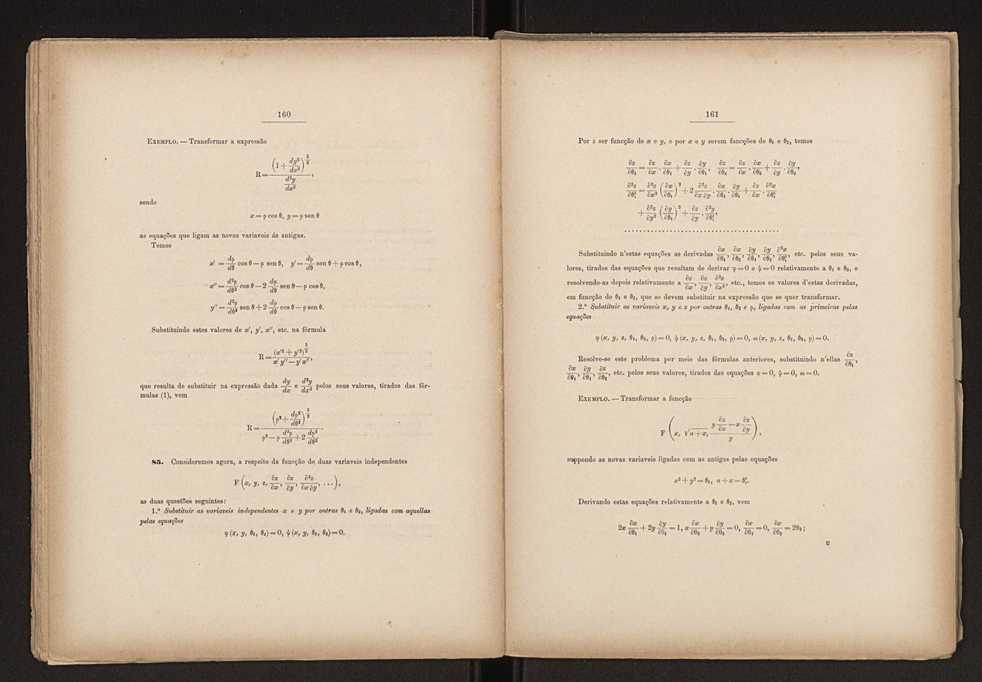 160
EXEMPLO. — Transformar a expressão
R = (1 + dy²/dx²)^{3/2} / (d²y/dx²),
sendo
x = ρ cos θ, y = ρ sen θ
as equações que ligam as novas variaveis ás antigas.
Temos
x' = dρ/dθ cos θ — ρ sen θ, y' = dρ/dθ sen θ + ρ cos θ,
x'' = d²ρ/dθ² cos θ — 2 dρ/dθ sen θ — ρ cos θ,
y'' = d²ρ/dθ² sen θ + 2 dρ/dθ cos θ — ρ sen θ.
Substituindo estes valores de x', y', x'', etc. na fórmula
R = (x'² + y'²)^{3/2} / (x' y'' — y' x''),
que resulta de substituir na expressão dada dy/dx e d²y/dx² pelos seus valores, tirados das fór-
mulas (1), vem
R = (ρ² + dρ²/dθ²)^{3/2} / (ρ² — ρ d²ρ/dθ² + 2 dρ²/dθ²).
85. Consideremos agora, a respeito da funcção de duas variaveis independentes
F (x, y, z, ∂z/∂x, ∂z/∂y, ∂²z/∂x∂y, ...),
as duas questões seguintes:
1.ª Substituir as variaveis independentes x e y por outras θ₁ e θ₂, ligadas com aquellas
pelas equações
φ (x, y, θ₁, θ₂) = 0, ψ (x, y, θ₁, θ₂) = 0.
161
Por z ser funcção de x e y, e por x e y serem funcções de θ₁ e θ₂, temos
∂z/∂θ₁ = ∂z/∂x . ∂x/∂θ₁ + ∂z/∂y . ∂y/∂θ₁, ∂z/∂θ₂ = ∂z/∂x . ∂x/∂θ₂ + ∂z/∂y . ∂y/∂θ₂,
∂²z/∂θ₁² = ∂²z/∂x² (∂x/∂θ₁)² + 2 ∂²z/∂x∂y . ∂x/∂θ₁ . ∂y/∂θ₁ + ∂z/∂x . ∂²x/∂θ₁²
+ ∂²z/∂y² (∂y/∂θ₁)² + ∂z/∂y . ∂²y/∂θ₁²,
......................................
Substituindo n'estas equações as derivadas ∂x/∂θ₁, ∂x/∂θ₂, ∂y/∂θ₁, ∂y/∂θ₂, ∂²x/∂θ₁², etc. pelos seus va-
lores, tirados das equações que resultam de derivar φ = 0 e ψ = 0 relativamente a θ₁ e θ₂, e
resolvendo-as depois relativamente a ∂z/∂x, ∂z/∂y, ∂²z/∂x², etc., temos os valores d'estas derivadas,
em funcção de θ₁ e θ₂, que se devem substituir na expressão que se quer transformar.
2.ª Substituir as variaveis x, y e z por outras θ₁, θ₂ e ρ, ligadas com as primeiras pelas
equações
φ (x, y, z, θ₁, θ₂, ρ) = 0, ψ (x, y, z, θ₁, θ₂, ρ) = 0, ω (x, y, z, θ₁, θ₂, ρ) = 0.
Resolve-se este problema por meio das fórmulas anteriores, substituindo n'ellas ∂x/∂θ₁,
∂x/∂θ₂, ∂y/∂θ₁, ∂z/∂θ₂, etc. pelos seus valores, tirados das equações φ = 0, ψ = 0, ω = 0.
EXEMPLO. — Transformar a funcção
F (x, √a + x, (y ∂z/∂x — x ∂z/∂y) / y),
suppondo as novas variaveis ligadas com as antigas pelas equações
x² + y² = θ₁, a + x = θ₂².
Derivando estas equações relativamente a θ₁ e θ₂, vem
2x ∂x/∂θ₁ + 2y ∂y/∂θ₁ = 1, x ∂x/∂θ₂ + y ∂y/∂θ₂ = 0, ∂x/∂θ₁ = 0, ∂x/∂θ₂ = 2θ₂;
U